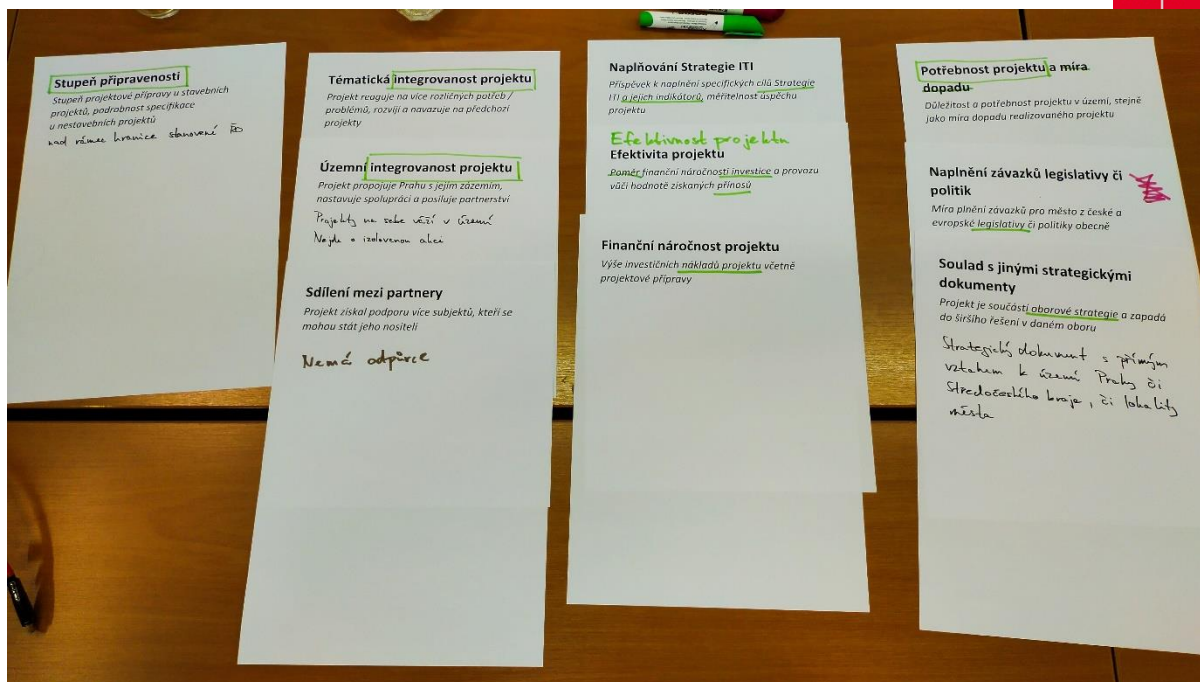 Stupeň připravenosti
Stupeň projektové přípravy u stavebních
projektů, podrobnost specifikace
u nestavebních projektů
nad rámec hranice stanovené ŘO
Tématická integrovanost projektu
Projekt reaguje na více rozličných potřeb /
problémů, rozvíjí a navazuje na předchozí
projekty
Územní integrovanost projektu
Projekt propojuje Prahu s jejím zázemím,
nastavuje spolupráci a posiluje partnerství
Projekty na sebe váží v území
Nejde o izolovanou akci
Sdílení mezi partnery
Projekt získal podporu více subjektů, kteří se
mohou stát jeho nositeli
Nemá odpůrce
Naplňování Strategie ITI
Příspěvek k naplnění specifických cílů Strategie
ITI a jejich indikátorů, měřitelnost úspěchu
projektu
Efektivnost projektu
Efektivita projektu
Poměr finanční náročnosti investice a provozu
vůči hodnotě získaných přínosů
Finanční náročnost projektu
Výše investičních nákladů projektu včetně
projektové přípravy
Potřebnost projektu a míra
dopadu
Důležitost a potřebnost projektu v území, stejně
jako míra dopadu realizovaného projektu
Naplnění závazků legislativy či
politik
Míra plnění závazků pro město z české a
evropské legislativy či politiky obecně
Soulad s jinými strategickými
dokumenty
Projekt je součástí oborové strategie a zapadá
do širšího řešení v daném oboru
Strategický dokument s přímým
vztahem k území Prahy či
Středočeského kraje, či lokality
města